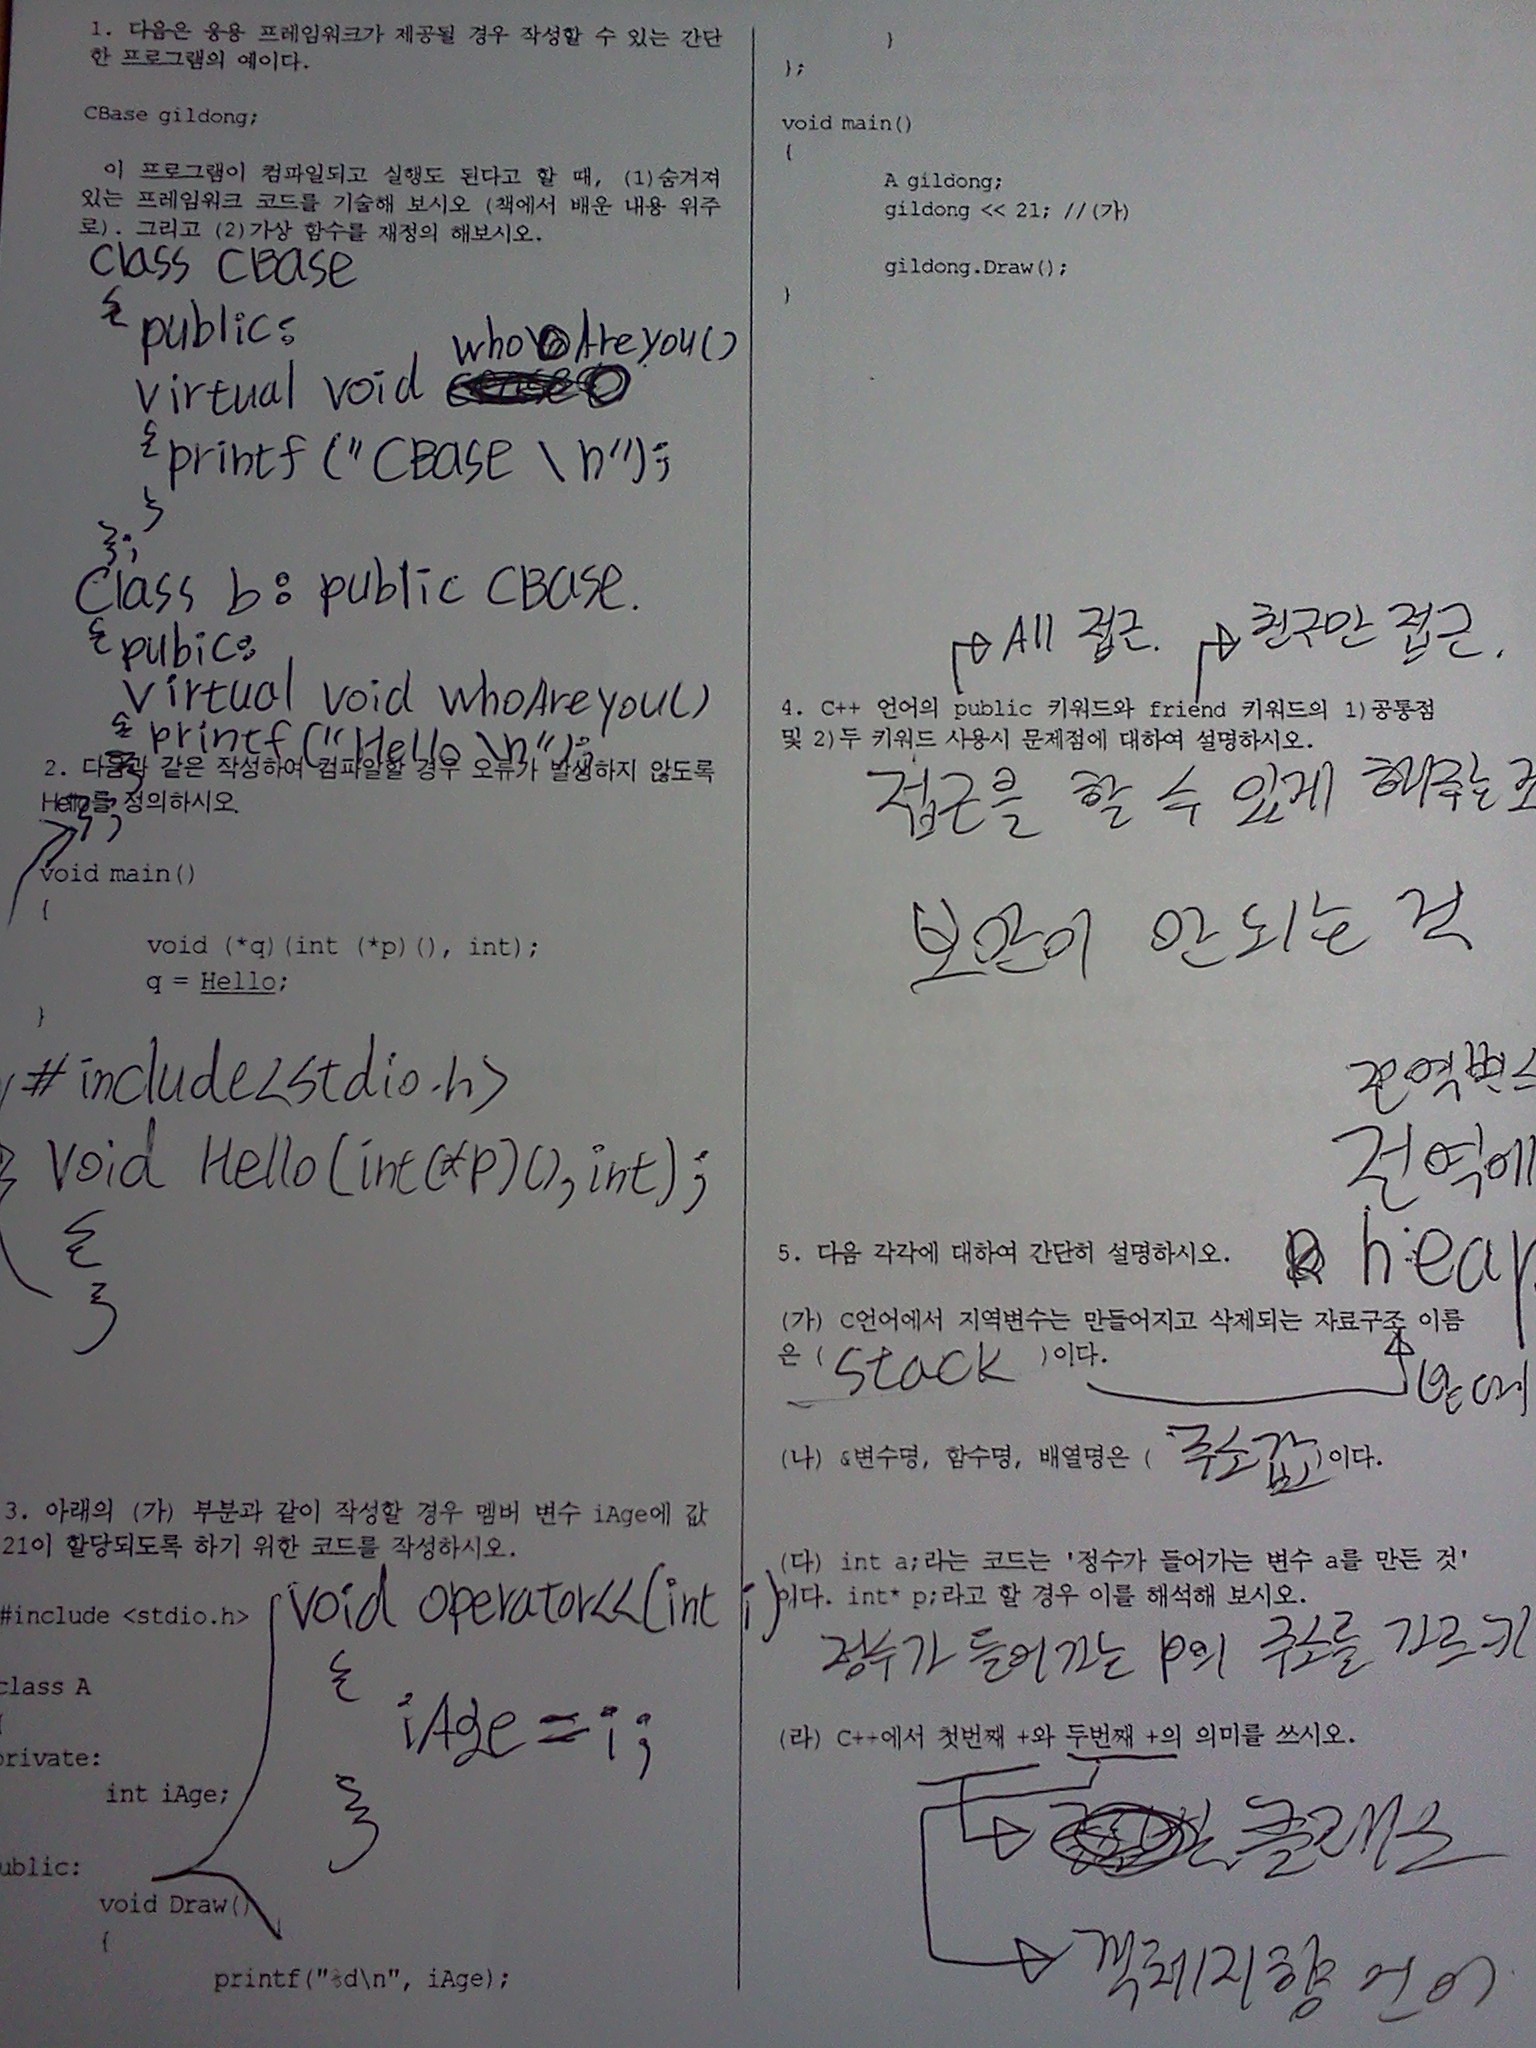 1. 다음은 응용 프레임워크가 제공될 경우 작성할 수 있는 간단
한 프로그램의 예이다.
CBase gildong;
이 프로그램이 컴파일되고 실행도 된다고 할 때, (1)숨겨져
있는 프레임워크 코드를 기술해 보시오 (책에서 배운 내용 위주
로). 그리고 (2)가상 함수를 재정의 해보시오.
class CBase
{ public:
whoAreyou()
virtual void
{ printf("CBase \n");
}
};
Class b: public CBase.
{ pubic:
virtual void whoAreyou()
{ printf("Hello \n");
}
};
2. 다음과 같은 작성하여 컴파일할 경우 오류가 발생하지 않도록
Hello를 정의하시오.
void main()
{
void (*q)(int (*p)(), int);
q = Hello;
}
#include<stdio.h>
void Hello(int(*p)(), int);
{
}
3. 아래의 (가) 부분과 같이 작성할 경우 멤버 변수 iAge에 값
21이 할당되도록 하기 위한 코드를 작성하시오.
#include <stdio.h>
void operator<<(int i)
{
iAge = i;
}
class A
{
private:
int iAge;
ublic:
void Draw()
{
printf("%d\n", iAge);
}
};
void main()
{
A gildong;
gildong << 21; //(가)
gildong.Draw();
}
All 접근. 친구만 접근.
4. C++ 언어의 public 키워드와 friend 키워드의 1)공통점
및 2)두 키워드 사용시 문제점에 대하여 설명하시오.
접근을 할 수 있게 해주는
보안이 안 되는 것
전역변수
전역에
5. 다음 각각에 대하여 간단히 설명하시오.
heap
(가) C언어에서 지역변수는 만들어지고 삭제되는 자료구조 이름
은 ( stack )이다.
(나) &변수명, 함수명, 배열명은 ( 주소값 )이다.
(다) int a;라는 코드는 '정수가 들어가는 변수 a를 만든 것'
이다. int* p;라고 할 경우 이를 해석해 보시오.
정수가 들어가는 p의 주소를 가르키
(라) C++에서 첫번째 +와 두번째 +의 의미를 쓰시오.
클래스
객체지향 언어